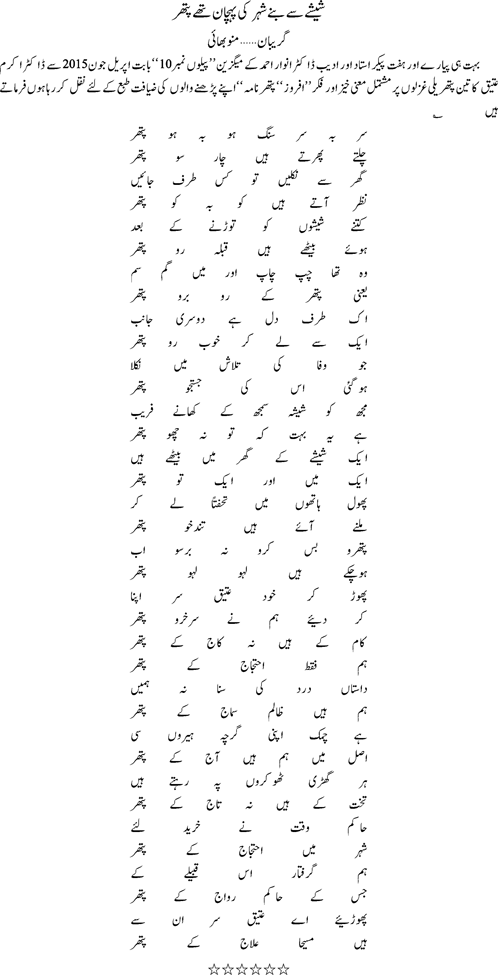 شیشے سے بنے شہر کی پہچان تھے پتھر
گریبان ...... منو بھائی
بہت ہی پیارے اور ہفت پیکر استاد اور ادیب ڈاکٹر انوار احمد کے میگزین ”پیلوں نمبر 10“ بابت اپریل جون 2015 سے ڈاکٹر اکرم
عتیق کا تین پتھریلی غزلوں پر مشتمل معنی خیز اور فکر ”افروز“ ”پتھر نامہ“ اپنے پڑھنے والوں کی ضیافت طبع کے لئے نقل کر رہا ہوں فرماتے
ہیں ؎
سر بہ سر سنگ ہو بہ ہو پتھر
چلتے پھرتے ہیں چار سو پتھر
گھر سے نکلیں تو کس طرف جائیں
نظر آتے ہیں کو بہ کو پتھر
کتنے شیشوں کو توڑنے کے بعد
ہوئے بیٹھے ہیں قبلہ رو پتھر
وہ تھا چپ چاپ اور میں گم سم
یعنی پتھر کے رو برو پتھر
اک طرف دل ہے دوسری جانب
ایک سے لے کر خوب رو پتھر
جو وفا کی تلاش میں نکلا
ہو گئی اس کی جستجو پتھر
مجھ کو شیشہ سمجھ کے کھائے فریب
ہے یہ بہت کہ تو نہ چھو پتھر
ایک شیشے کے گھر میں بیٹھے ہیں
ایک میں اور ایک تو پتھر
پھول ہاتھوں میں تحفتاً لے کر
ملنے آئے ہیں تندخو پتھر
پتھرو بس کرو نہ برسو اب
ہوچکے ہیں لہو لہو پتھر
پھوڑ کر خود عتیق سر اپنا
کر دیئے ہم نے سرخرو پتھر
کام کے ہیں نہ کاج کے پتھر
ہم فقط احتجاج کے پتھر
داستاں درد کی سنا نہ ہمیں
ہم ہیں ظالم سماج کے پتھر
ہے چمک اپنی گرچہ ہیروں سی
اصل میں ہم ہیں آج کے پتھر
ہر گھڑی ٹھوکروں پہ رہتے ہیں
تخت کے ہیں نہ تاج کے پتھر
حاکم وقت نے خرید لئے
شہر میں احتجاج کے پتھر
ہم گرفتار اس قبیلے کے
جس کے حاکم رواج کے پتھر
پھوڑیئے اے عتیق سر ان سے
ہیں مسیحا علاج کے پتھر
☆☆☆☆☆☆